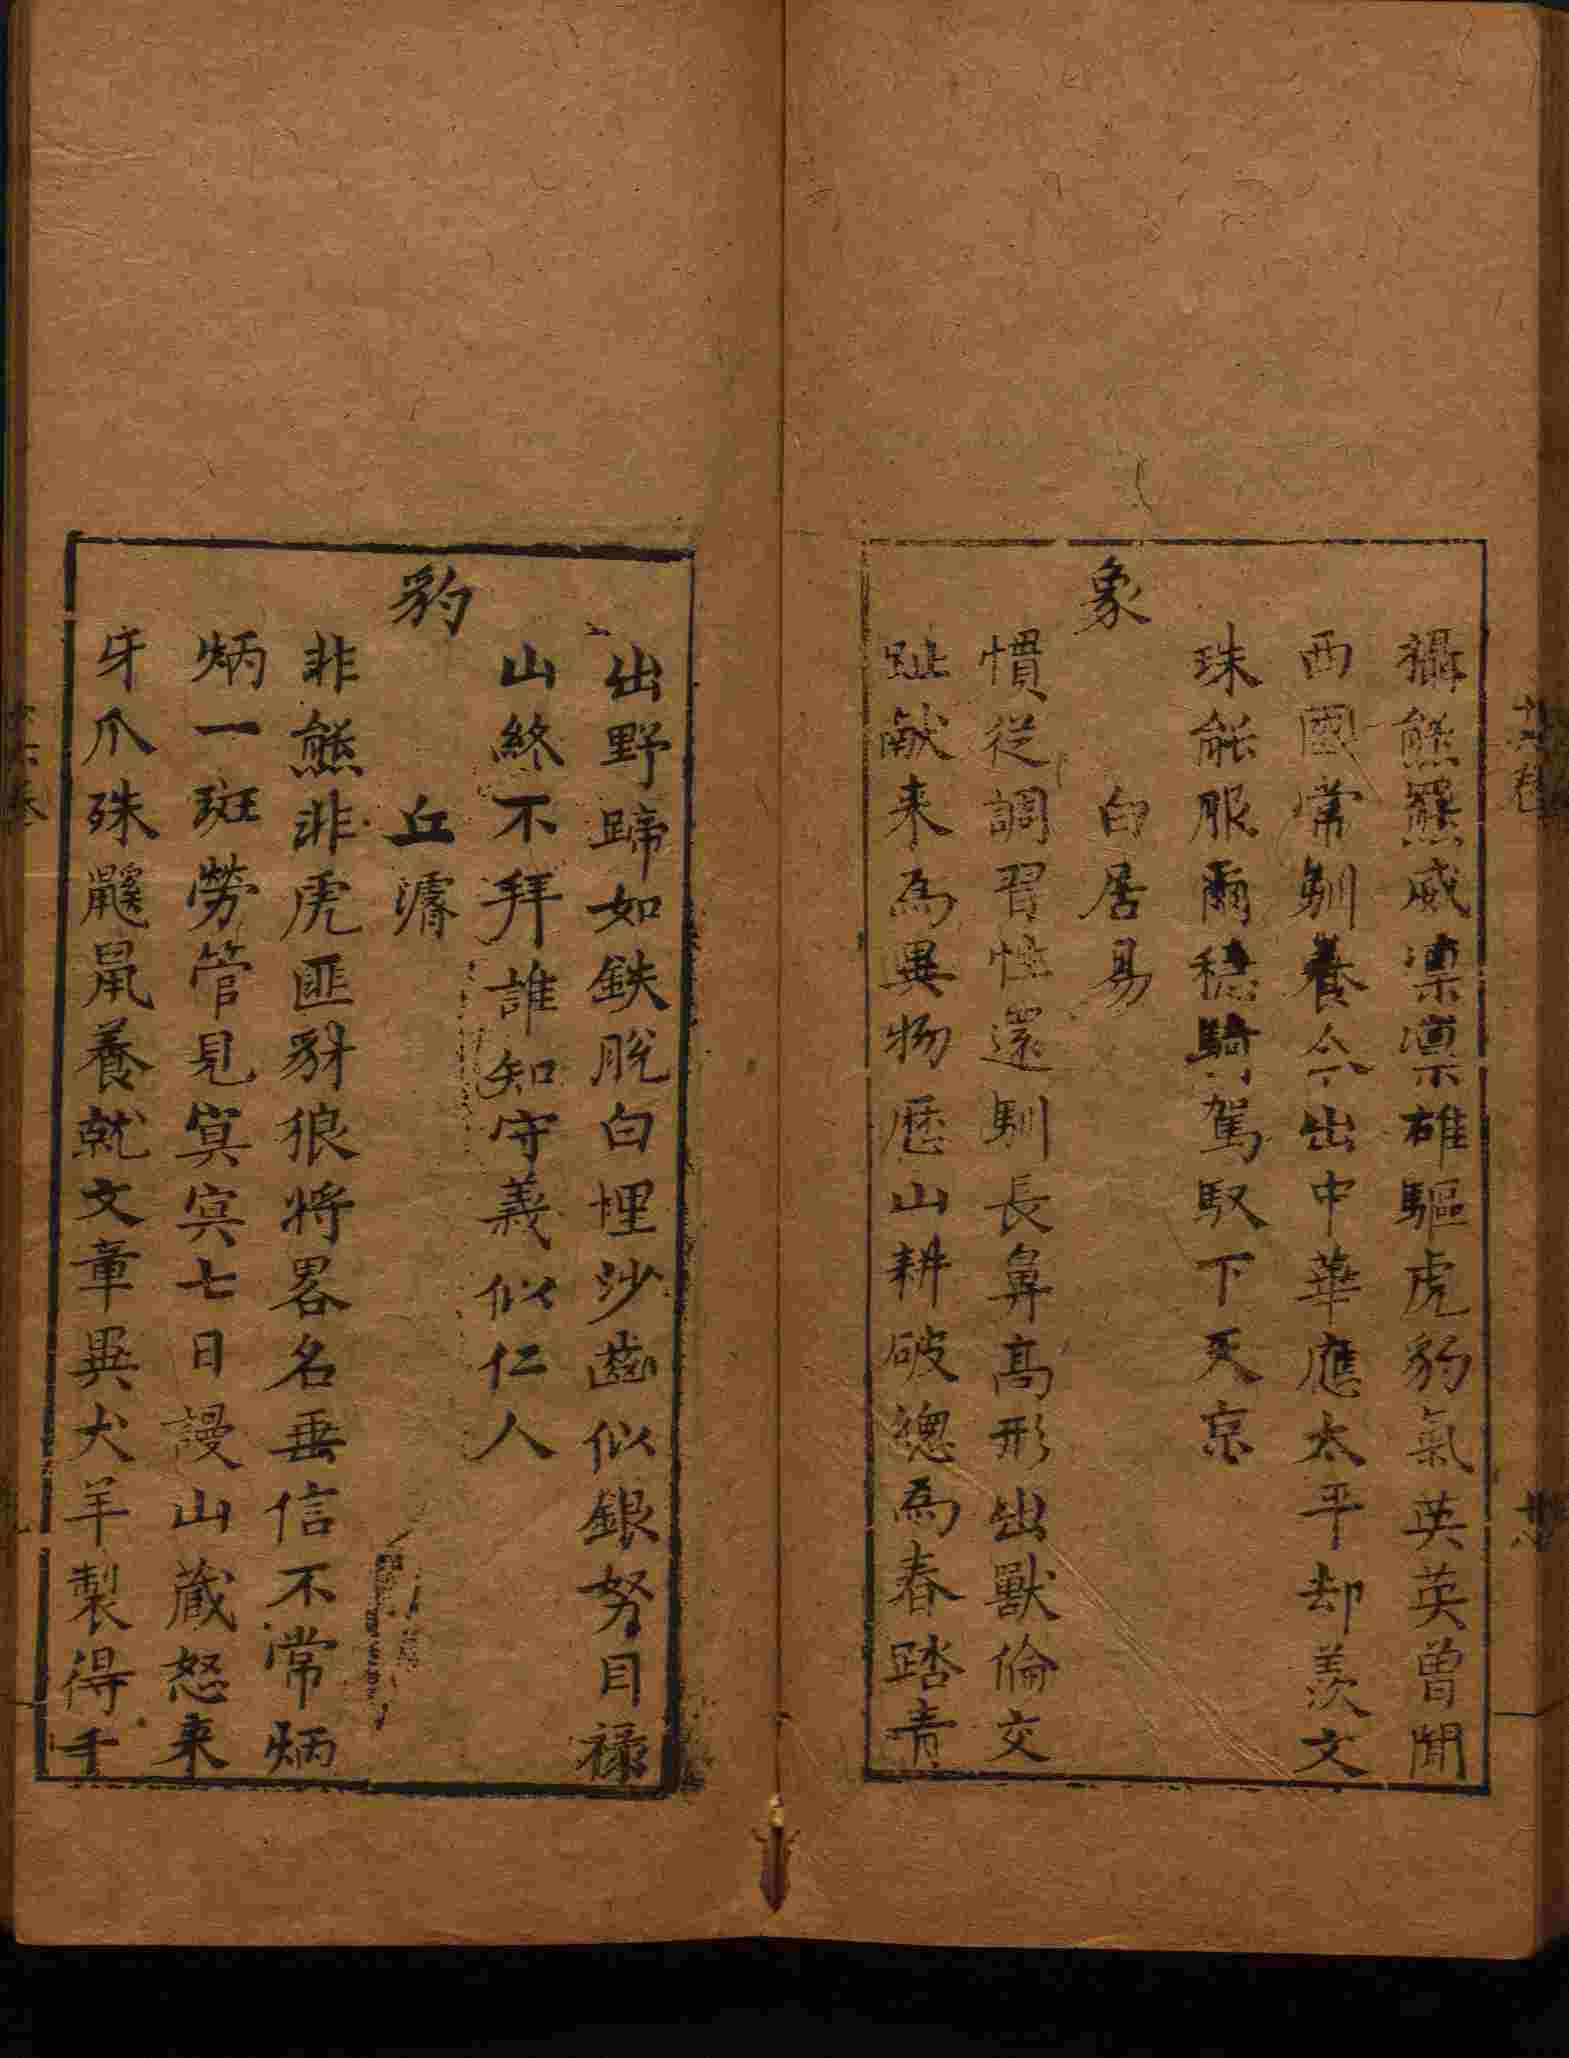 攝熊羆威凜凜雄驅虎豹氣英英曽聞
西國常馴養今出中華應太平却羨文
珠能服爾穏騎駕馭下天京
象
白居易
慣從調習性還馴長鼻髙形出獸倫交
趾献来為異物歴山耕破總為春踏青
出野蹄如鉄脫白埋沙齒似銀努目禄
山終不拜誰知守義似仁人
豹
丘濬
非熊非虎匪豺狼将畧名垂信不常炳
炳一斑勞管見冥冥七日謾山蔵怒来
牙爪殊鼷鼠養就文章異犬羊製得千